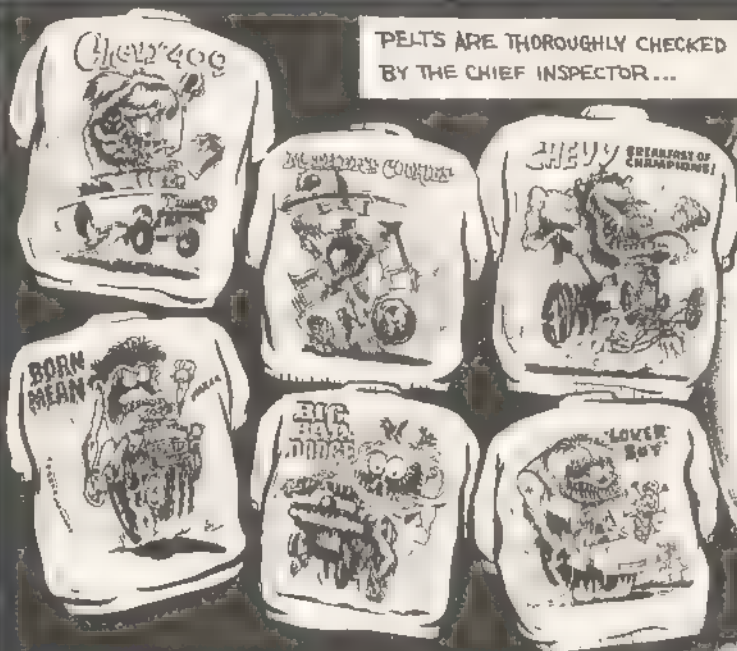 PELTS ARE THOROUGHLY CHECKED
BY THE CHIEF INSPECTOR...
Chevy 409
MOTHER'S COOKIES
CHEVY BREAKFAST OF
CHAMPIONS!
BORN
MEAN
BIG
BAD
DODGE
"LOVER
BOY"